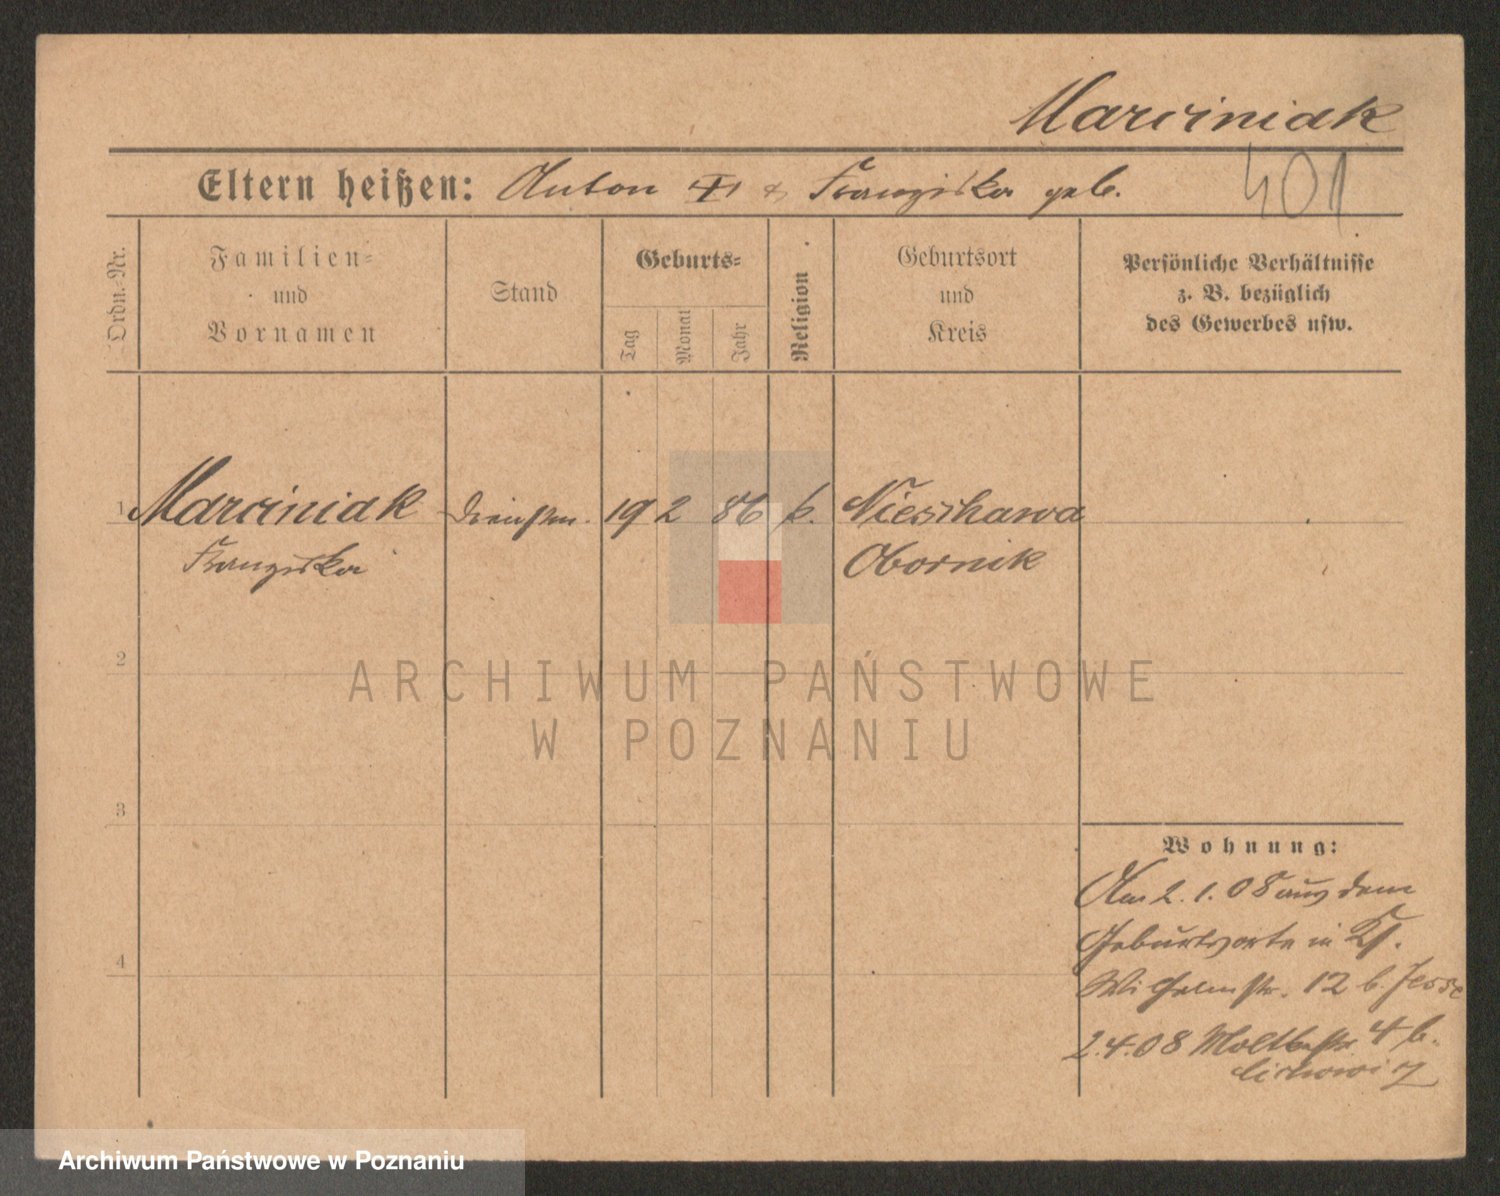 Marciniak
401
Eltern heißen: Anton & Franziska geb.
Ordn.-Nr.
Familien-
und
Vornamen
Stand
Geburts-
Tag
Monat
Jahr
Religion
Geburtsort
und
Kreis
Persönliche Verhältnisse
z. B. bezüglich
des Gewerbes usw.
1 Marciniak Dienstm. 19 2 86 k. Nieschawa
Franziska Obornik
2
3
4
Wohnung:
Am 2.1.08 aus dem
Geburtsorte in
Wilhelmstr. 12 b. Jesse
2.4.08 Moltkestr 4 b.
ARCHIWUM PAŃSTWOWE
W POZNANIU
Archiwum Państwowe w Poznaniu